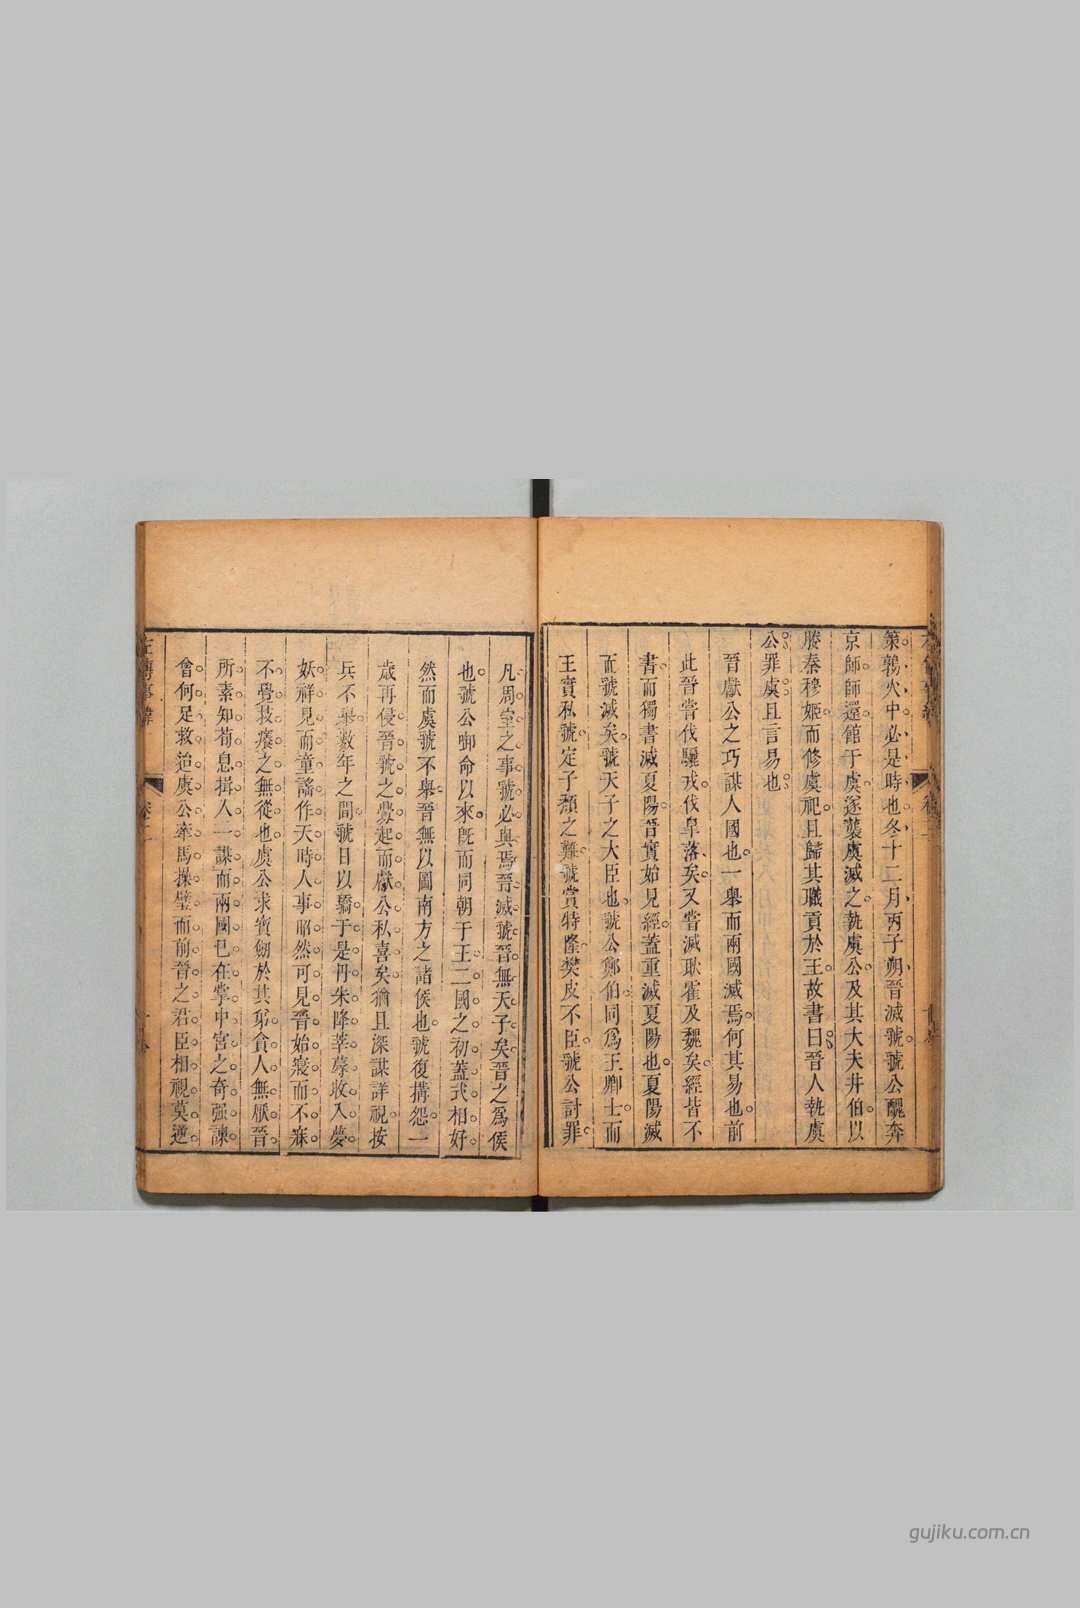 策鶉火中必是時也冬十二月丙子朔晉滅虢虢公醜奔
京師師還館于虞遂襲虞滅之執虞公及其大夫井伯以
媵秦穆姬而修虞祀且歸其職貢於王故書曰晉人執虞
公罪虞且言易也
晉獻公之巧謀人國也一舉而兩國滅焉何其易也前
此晉嘗伐驪戎伐皐落矣又嘗滅耿霍及魏矣經皆不
書而獨書滅夏陽晉實始見經蓋重滅夏陽也夏陽滅
而虢滅矣虢天子之大臣也虢公鄭伯同為王卿士而
王實私虢定子頹之難虢賞特隆樊皮不臣虢公討罪
凡周室之事虢必與焉晉滅虢晉無天子矣晉之為侯
也虢公啣命以來既而同朝于王二國之初蓋式相好
然而虞虢不舉晉無以圖南方之諸侯也虢復搆怨一
歲再侵晉虢之釁起而獻公私喜矣猶且深謀詳視按
兵不舉數年之間虢日以驕于是丹朱降莘蓐收入夢
妖祥見而童謠作天時人事昭然可見晉始寢而不寐
不覺技癢之無從也虞公求寶劒於其弟貪人無厭晉
所素知荀息揖入一謀而兩國已在掌中宮之奇强諫
曾何足救迨虞公牽馬操璧而前晉之君臣相視莫逆
左傳事緯
卷二
gujiku.com.cn